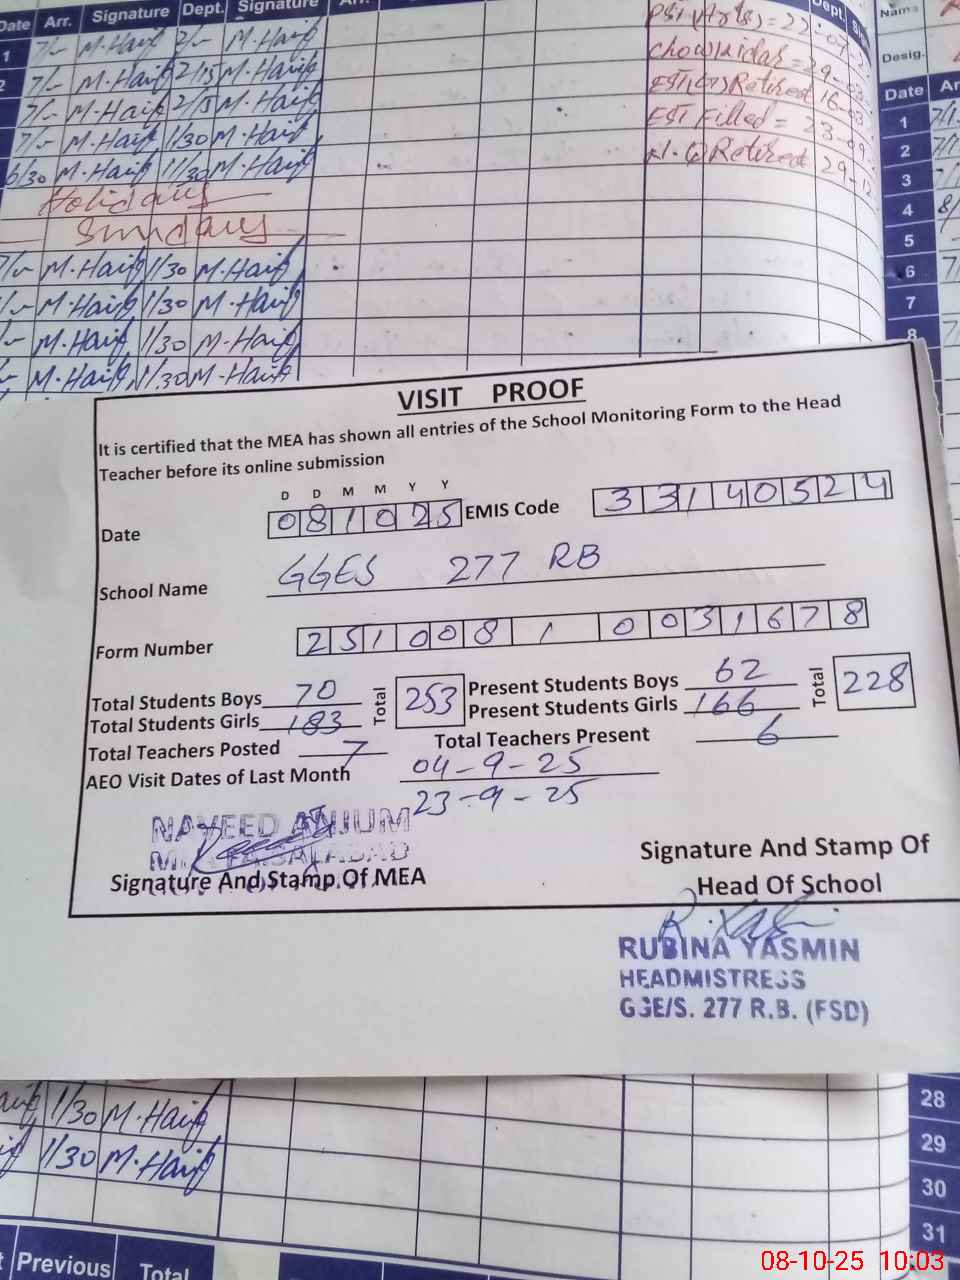 Date Arr. Signature Dept. Signature
1 7/- M.Haif 2/- M.Haif
2 7/- M.Haif 2/15 M.Haif
7/- M.Haif 2/15 M.Haif
7/- M.Haif 1/30 M.Haif
6/30 M.Haif 1/30 M.Haif
Holidays
Sunday
M.Haif 1/30 M.Haif
M.Haif 1/30 M.Haif
M.Haif 1/30 M.Haif
M.Haif 1/30 M.Haif
PST (Arts) = 22-07
Chowkidar = 29-03
Retired 16-03
EST Filled = 23-09
Retired 29-12
Dept.
Name
Desig.
Date
1
2
3
4
5
6
7
8
VISIT PROOF
It is certified that the MEA has shown all entries of the School Monitoring Form to the Head
Teacher before its online submission
D D M M Y Y
Date 081025 EMIS Code 33140524
School Name GGES 277 RB
Form Number 251008 1 0031678
Total Students Boys 70 Total 253 Present Students Boys 62 Total 228
Total Students Girls 183 Present Students Girls 166
Total Teachers Posted 7 Total Teachers Present 6
AEO Visit Dates of Last Month 04-9-25
23-9-25
NAVEED ANJUM
FAISALABAD
Signature And Stamp Of MEA
Signature And Stamp Of
Head Of School
R.Yasmin
RUBINA YASMIN
HEADMISTRESS
GGE/S. 277 R.B. (FSD)
1/30 M.Haif
1/30 M.Haif
28
29
30
31
Previous Total
08-10-25 10:03